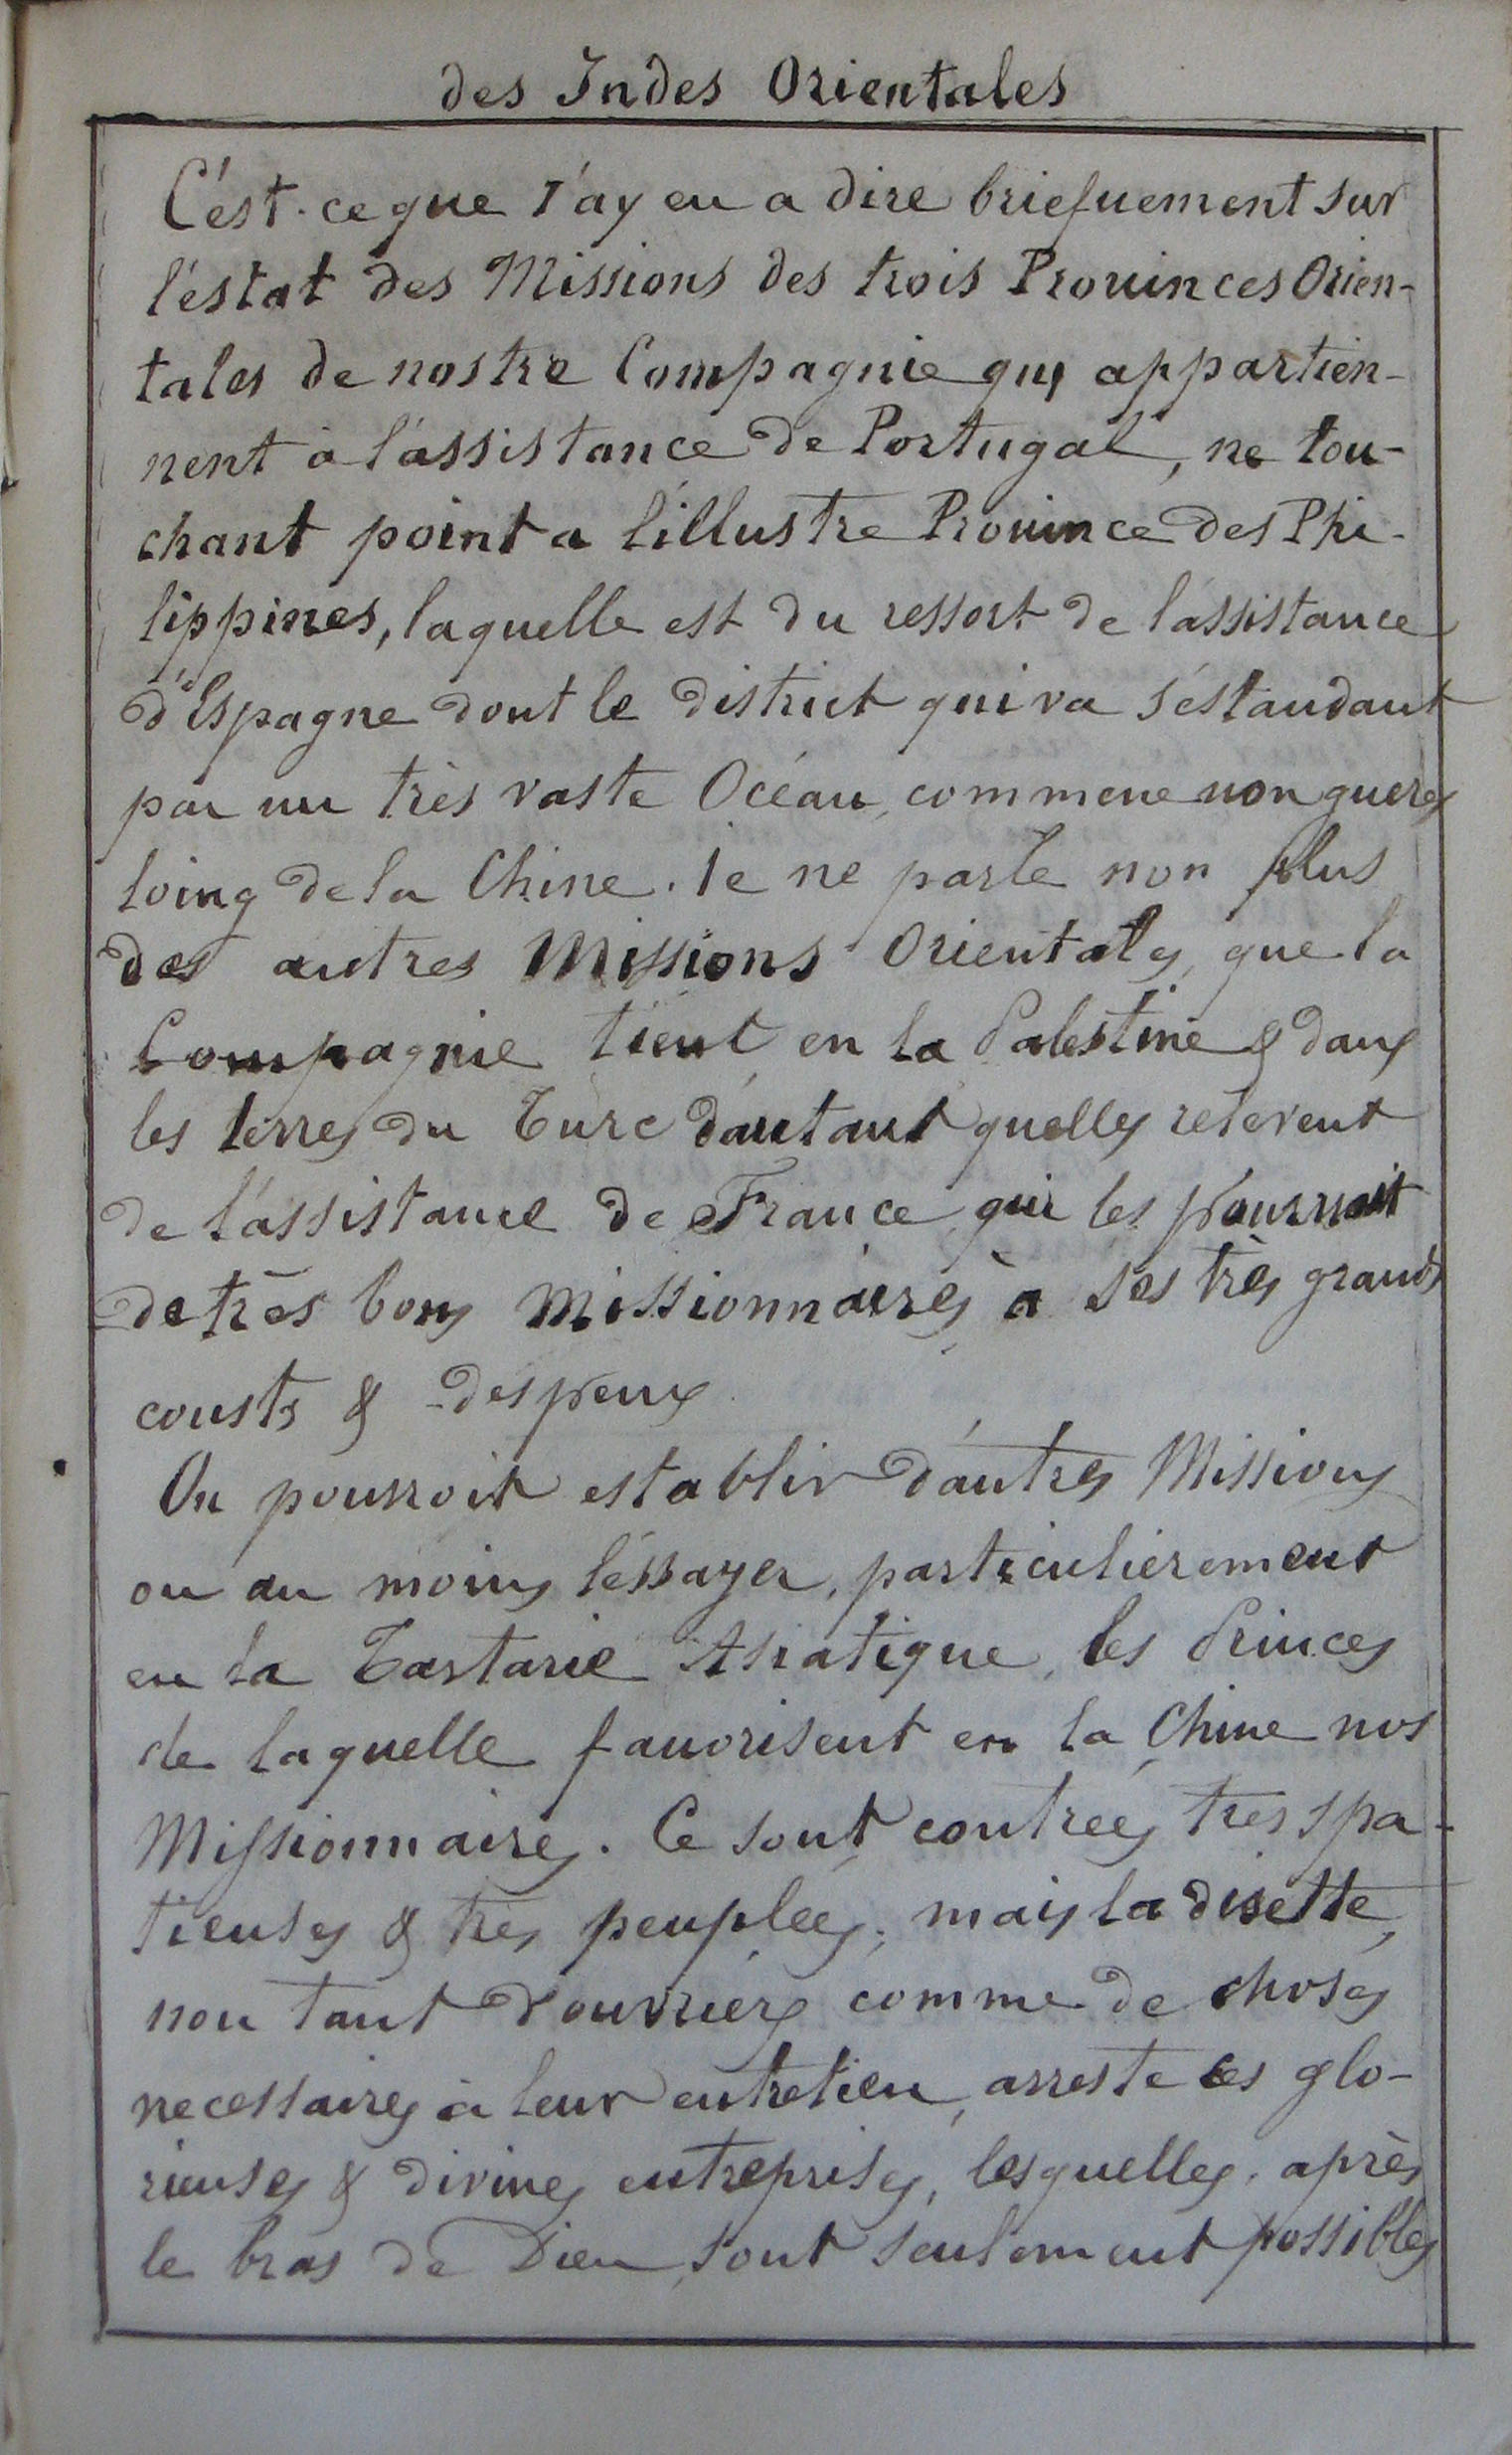 des Indes Orientales
C'est ce que i'ay eu a dire briefuement sur
l'estat des Missions des trois Prouinces Orien-
tales de nostre Compagnie qui appartien-
nent à l'assistance de Portugal, ne tou-
chant point a l'illustre Prouince des Phi-
lippines, laquelle est du ressort de l'assistance
d'Espagne dont le district qui va s'éstandant
par un très vaste Océan, commene non gueres
loing de la Chine. Ie ne parle non plus
des autres Missions Orientales, que la
Compagnie tient en la Palestine & dans
les terres du Turc d'autant quelles relevent
de l'assistance de France, qui les pouruoit
de très bons Missionnaires, à ses très grands
cousts & despens.
On pourroit establir d'autres Missions
ou au moins l'éssayer, particulierement
en la Tartarie Asiatique, les Princes
de laquelle fauorisent en la Chine nos
Missionnaires. Ce sont contrées tres spa-
tieuses & tres peuplées; mais la disette,
non tant d'ouvriers comme de choses
necessaires à leur entretien, arreste ces glo-
rieuses & divines entreprises, lesquelles, après
le bras de Dieu, sont seulement possibles